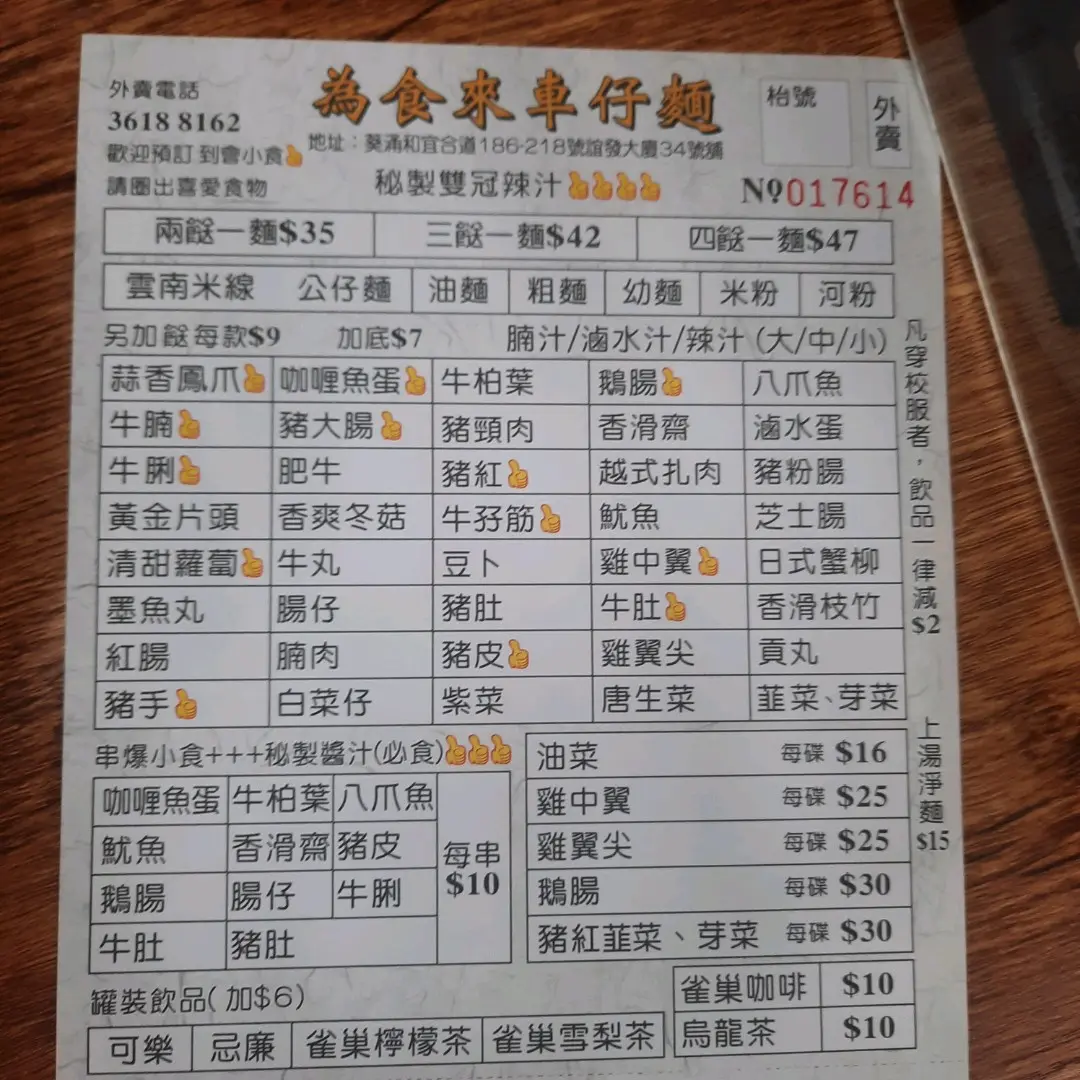 外賣電話
3618 8162
歡迎預訂 到會小食
請圈出喜愛食物
為食來車仔麵
地址：葵涌和宜合道186-218號誼發大廈34號舖
秘製雙冠辣汁
枱號
外賣
№017614
兩餸一麵$35 三餸一麵$42 四餸一麵$47
雲南米線 公仔麵 油麵 粗麵 幼麵 米粉 河粉
另加餸每款$9 加底$7 腩汁/滷水汁/辣汁 (大/中/小)
蒜香鳳爪 咖喱魚蛋 牛柏葉 鵝腸 八爪魚
牛腩 豬大腸 豬頸肉 香滑齋 滷水蛋
牛脷 肥牛 豬紅 越式扎肉 豬粉腸
黃金片頭 香爽冬菇 牛孖筋 魷魚 芝士腸
清甜蘿蔔 牛丸 豆卜 雞中翼 日式蟹柳
墨魚丸 腸仔 豬肚 牛肚 香滑枝竹
紅腸 腩肉 豬皮 雞翼尖 貢丸
豬手 白菜仔 紫菜 唐生菜 韮菜、芽菜
凡穿校服者，飲品一律減$2
上湯淨麵$15
串爆小食+++秘製醬汁(必食)
咖喱魚蛋 牛柏葉 八爪魚
魷魚 香滑齋 豬皮
鵝腸 腸仔 牛脷
牛肚 豬肚
每串
$10
油菜 每碟 $16
雞中翼 每碟 $25
雞翼尖 每碟 $25
鵝腸 每碟 $30
豬紅韮菜、芽菜 每碟 $30
罐裝飲品(加$6)
可樂 忌廉 雀巢檸檬茶 雀巢雪梨茶
雀巢咖啡 $10
烏龍茶 $10